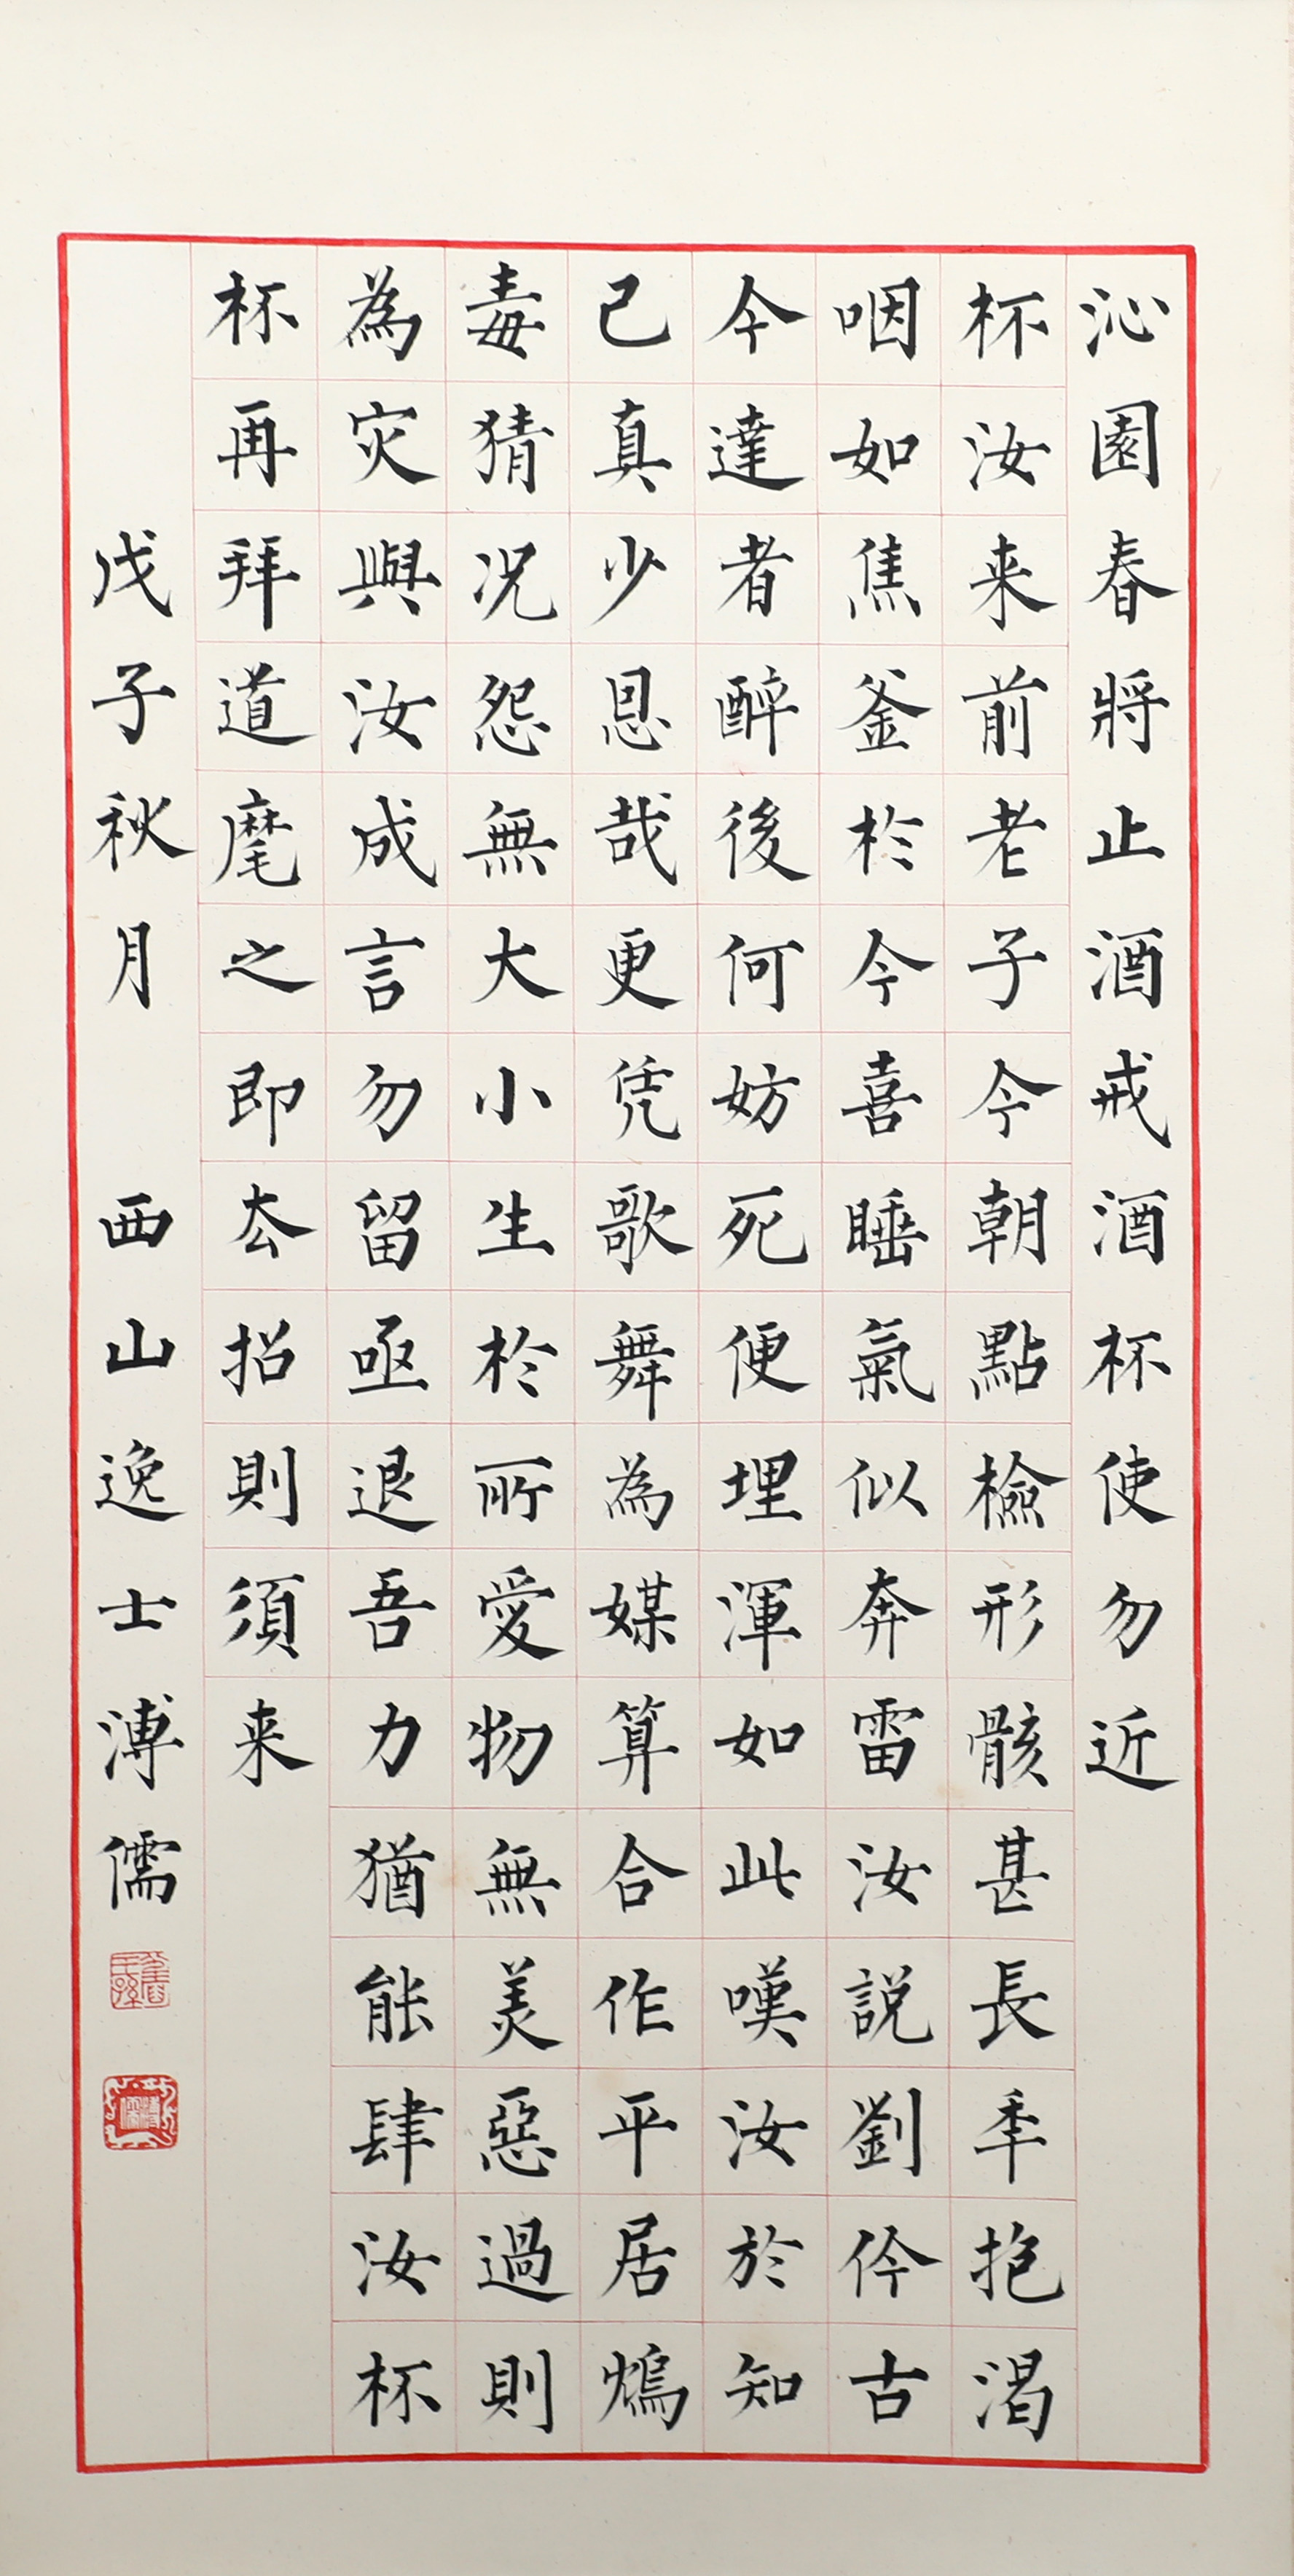 沁園春將止酒戒酒杯使勿近
杯汝来前老子今朝點檢形骸甚長秊抱渴
咽如焦釜於今喜睡氣似奔雷汝説劉伶古
今達者醉後何妨死便埋渾如此嘆汝於知
己真少恩哉更凭歌舞為媒算合作平居鴆
毒猜况怨無大小生於所愛物無美惡過則
為灾與汝成言勿留亟退吾力猶能肆汝杯
杯再拜道麾之即去招則須来
戊子秋月 西山逸士溥儒
舊王孫
溥儒